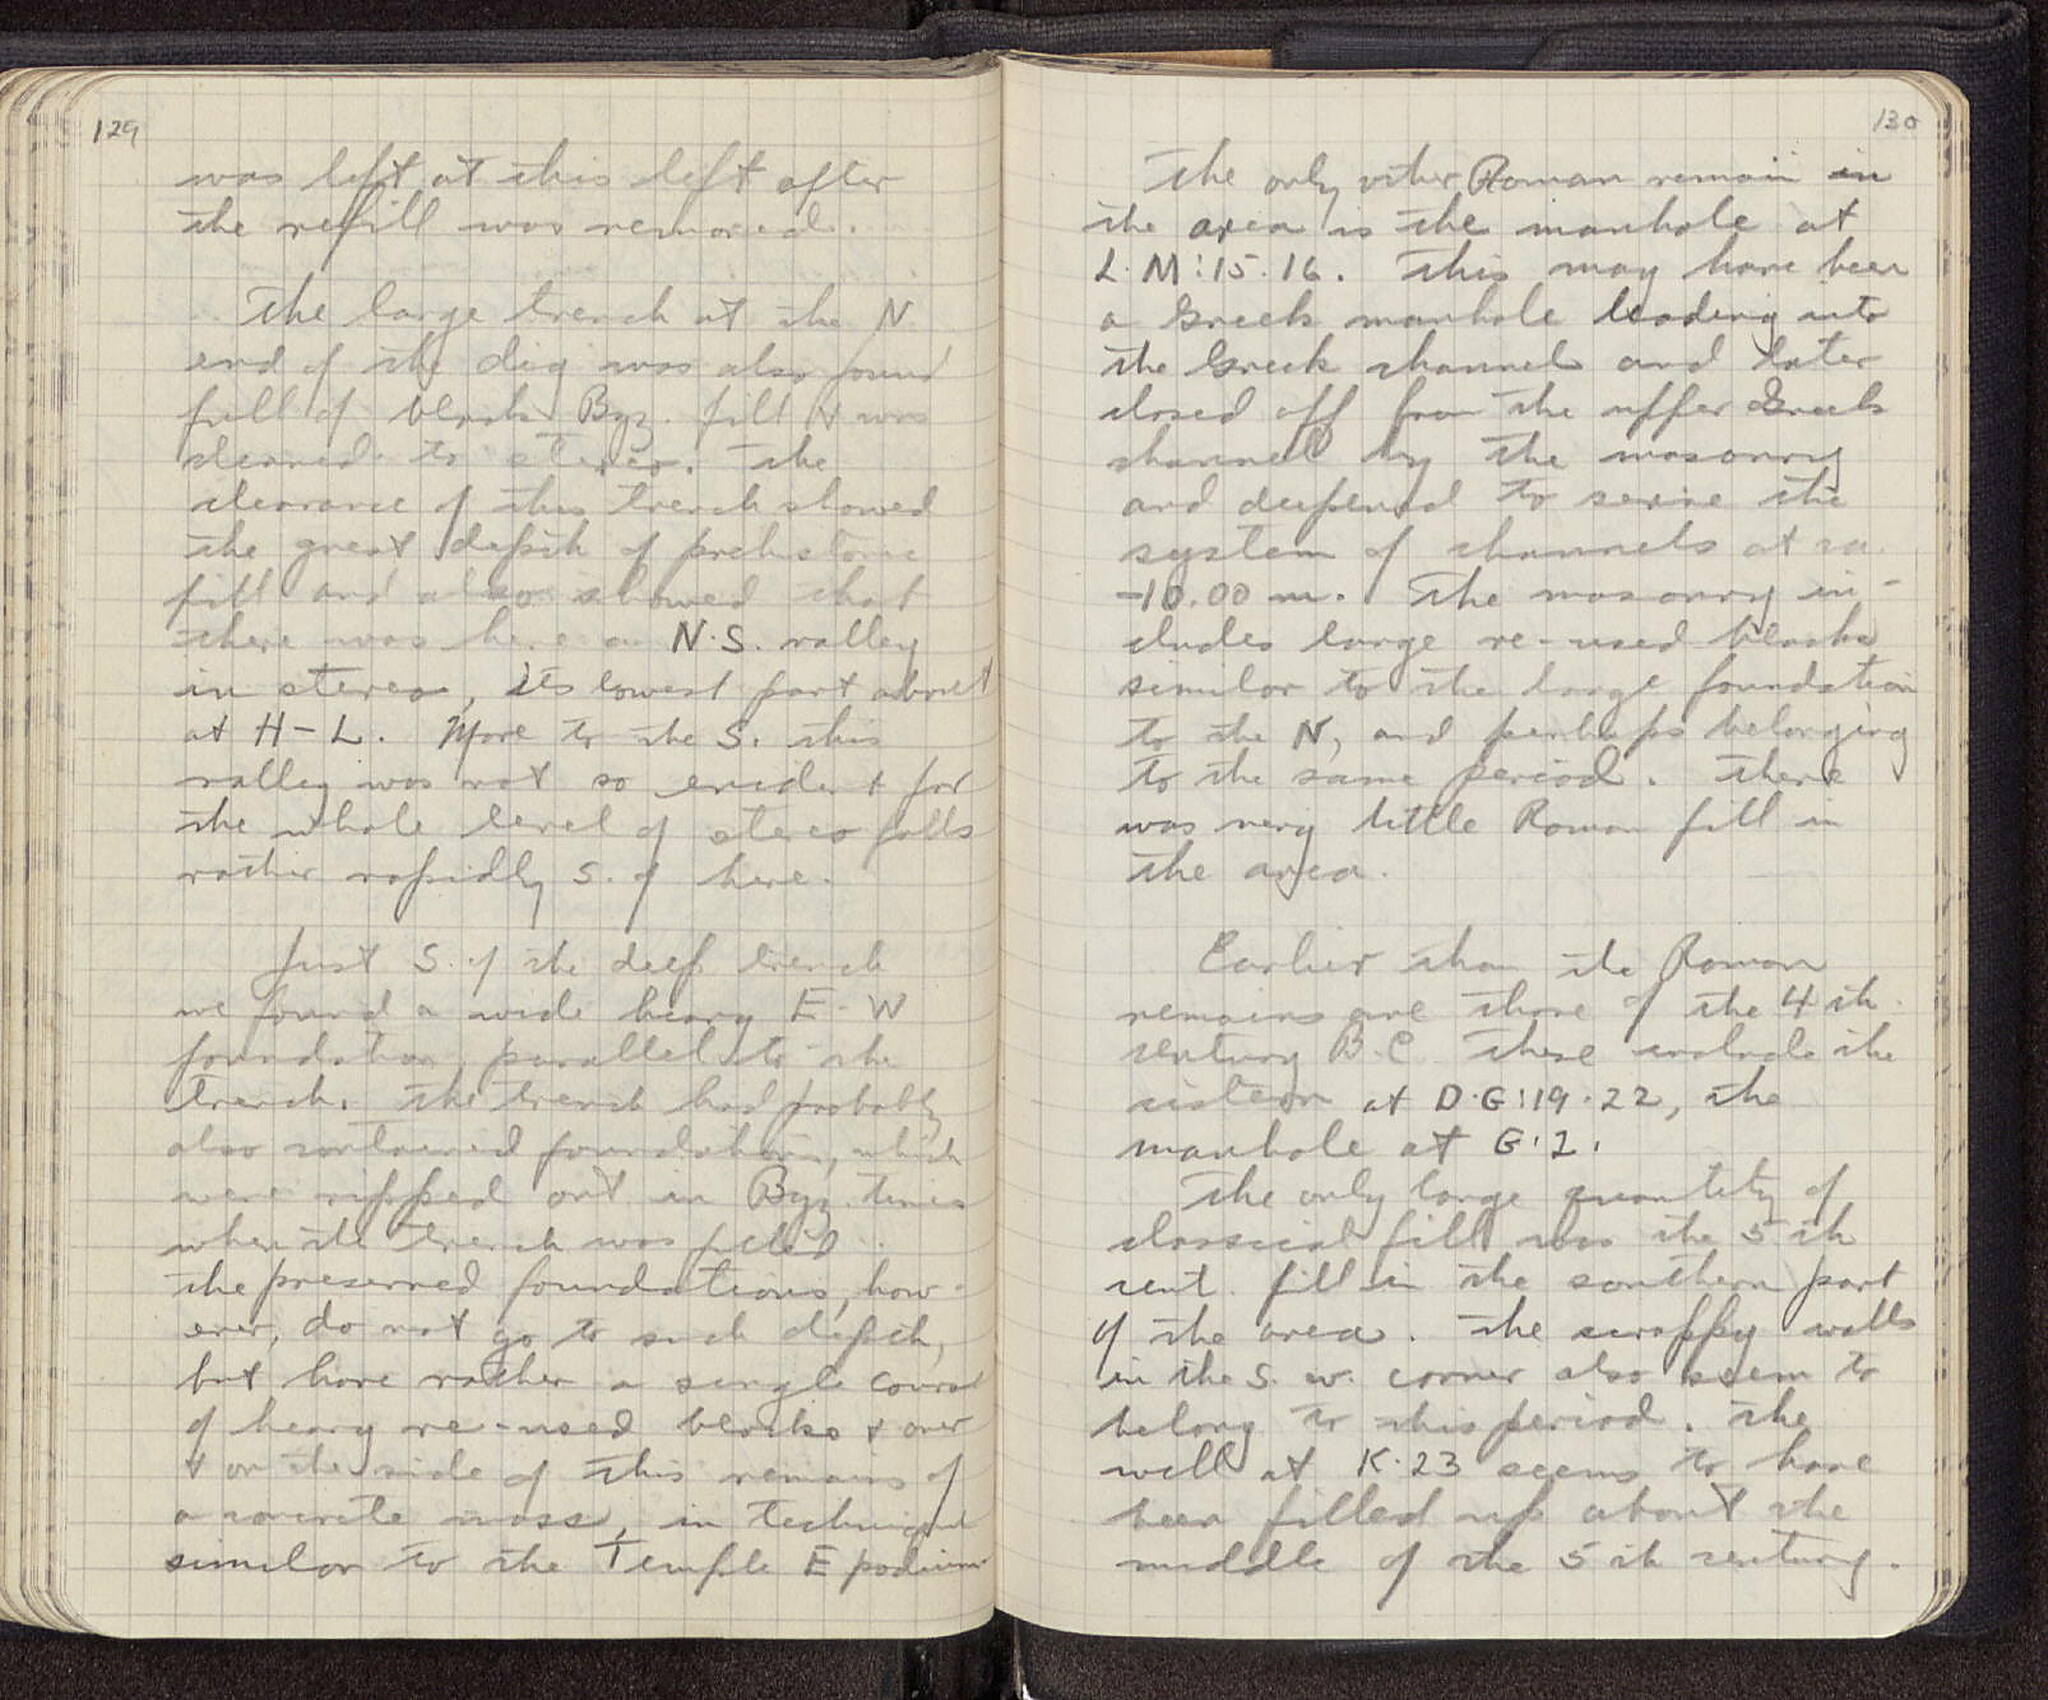 129
was left at this left after
the refill was removed.
The large trench at the N
end of the dig was also found
full of black Byz. fill & was
cleared to stereo. The
clearance of this trench showed
the great depth of prehistoric
fill and also showed that
there was here a N.S. valley
in stereo, its lowest part about
at H-L. More to the S. this
valley was not so evident for
the whole level of stereo falls
rather rapidly S. of here.
Just S. of the deep trench
we found a wide heavy E-W
foundation, parallel to the
trench. The trench had probably
also contained foundations, which
were ripped out in Byz. times
when the trench was filled.
The preserved foundations, how-
ever, do not go to such depth,
but have rather a single course
of heavy re-used blocks & over
& on the side of this remains of
a concrete mass, in technique
similar to the Temple E podium
130
The only other Roman remain in
the area is the manhole at
L.M:15.16. This may have been
a Greek manhole leading into
the Greek channel and later
closed off from the upper Greek
channel by the masonry
and deepened to serve the
system of channels at ca.
-10.00 m. The masonry in-
cludes large re-used blocks
similar to the large foundation
to the N, and perhaps belonging
to the same period. There
was very little Roman fill in
the area.
Earlier than the Roman
remains are those of the 4th
century B.C. These include the
cistern at D.G:19.22, the
manhole at
The only large quantity of
classical fill was the 5th
cent. fill in the southern part
of the area. The scrappy walls
in the S.W. corner also seem to
belong to this period. The
well at K.23 seems to have
been filled up about the
middle of the 5th century.